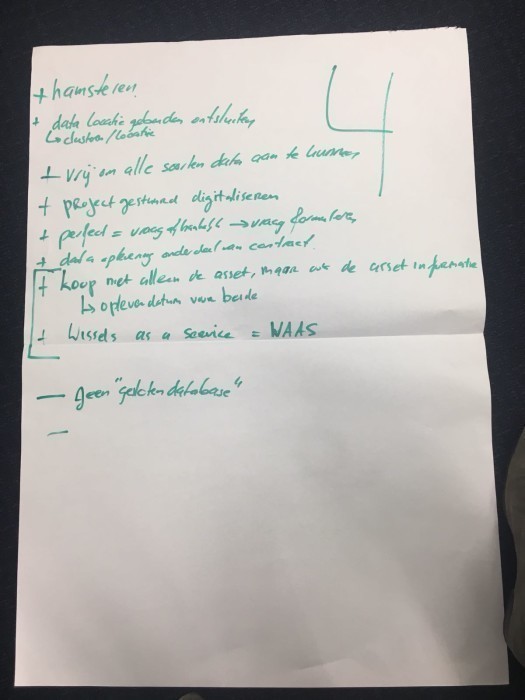 4
+ hamsteren
+ data locatie gebonden ontsluiten
↳ cluster/locatie
+ vrij om alle soorten data aan te kunnen
+ project gestuurd digitaliseren
+ perfect = vraag afhankelijk → vraag formuleren
+ data oplevering onderdeel van contract.
+ koop niet alleen de asset, maar ook de asset informatie
↳ oplever datum voor beide
+ Wissels as a service = WAAS
— geen "gesloten database"
—